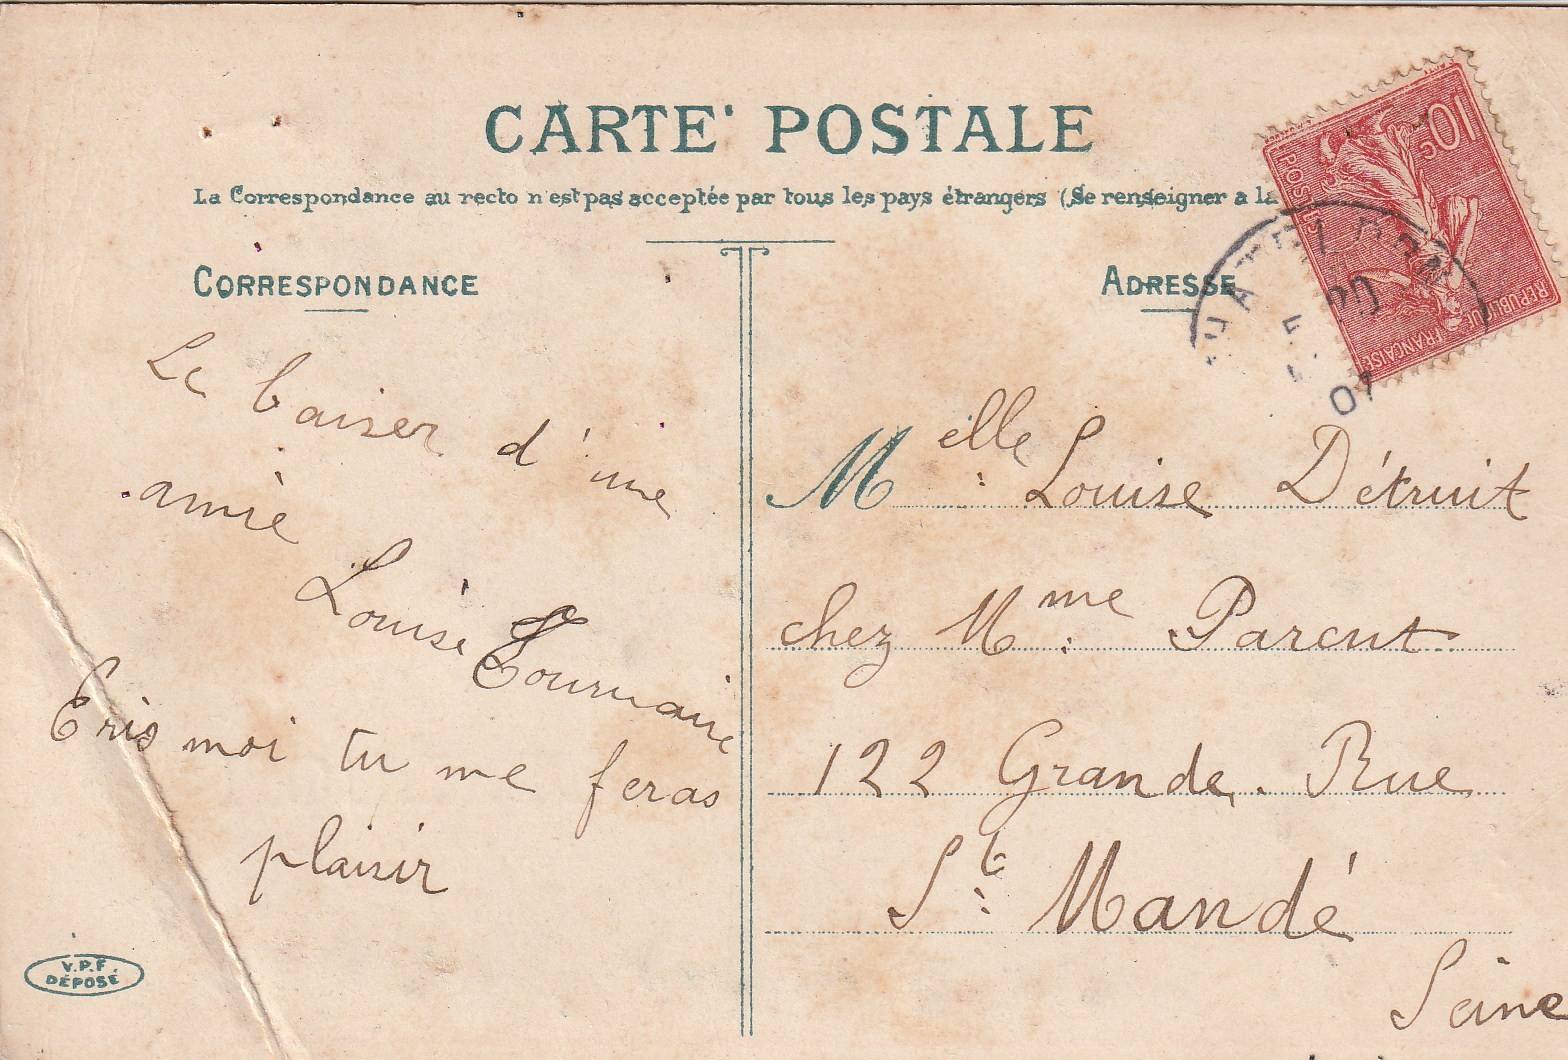 CARTE POSTALE
La Correspondance au recto n'est pas acceptée par tous les pays étrangers (Se renseigner a la
CORRESPONDANCE
Le baiser d'une
amie
Louise Tournaire
Eris moi tu me feras
plaisir
V.P.F.
DÉPOSÉ
ADRESSE
Melle Louise Détruit
chez Mme Parent
122 Grande Rue
St Mandé
Seine
10c
POSTES
REPUBLIQUE FRANÇAISE
07